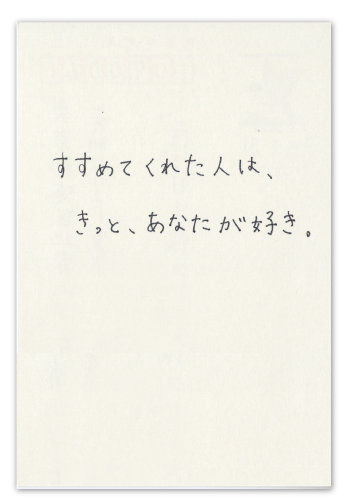 すすめてくれた人は、
きっと、あなたが好き。